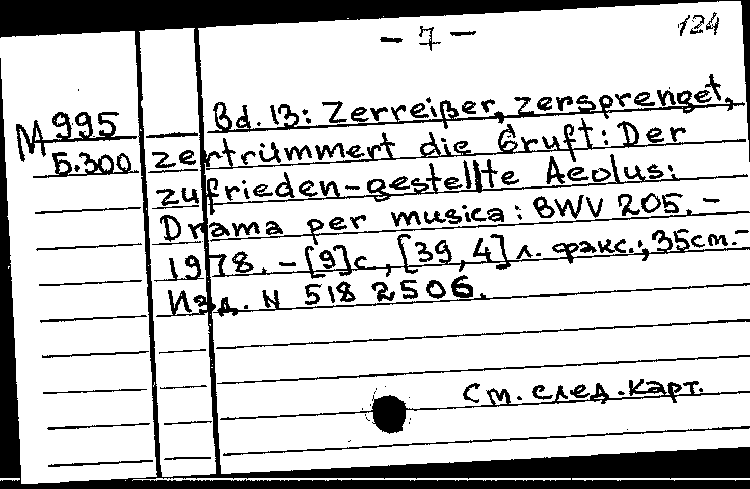 - 7 - 124
M 995 Bd. 13: Zerreißer, zersprenget,
5.300 zertrümmert die Gruft: Der
zufrieden-gestellte Aeolus:
Drama per musica: BWV 205. -
1978. - [9]с., [39, 4] л. факс.; 35см. -
Изд. N 518 2506.
См. след. карт.